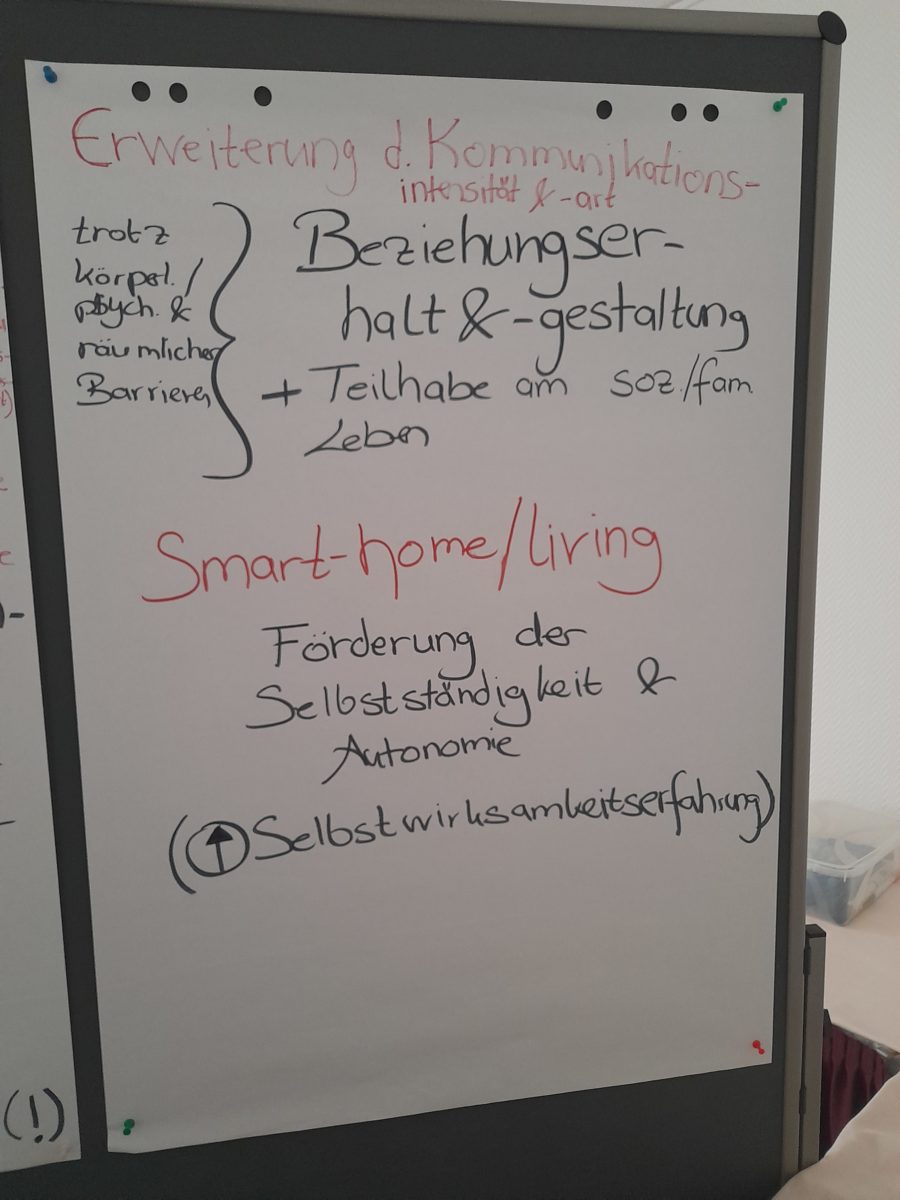 Erweiterung d. Kommunikations-
intensität & -art
trotz
körperl. /
psych. &
räumlicher
Barrieren
Beziehungser-
halt & -gestaltung
+ Teilhabe am soz./fam.
Leben
Smart-home/living
Förderung der
Selbstständigkeit &
Autonomie
(↑ Selbstwirksamkeitserfahrung)
(!)